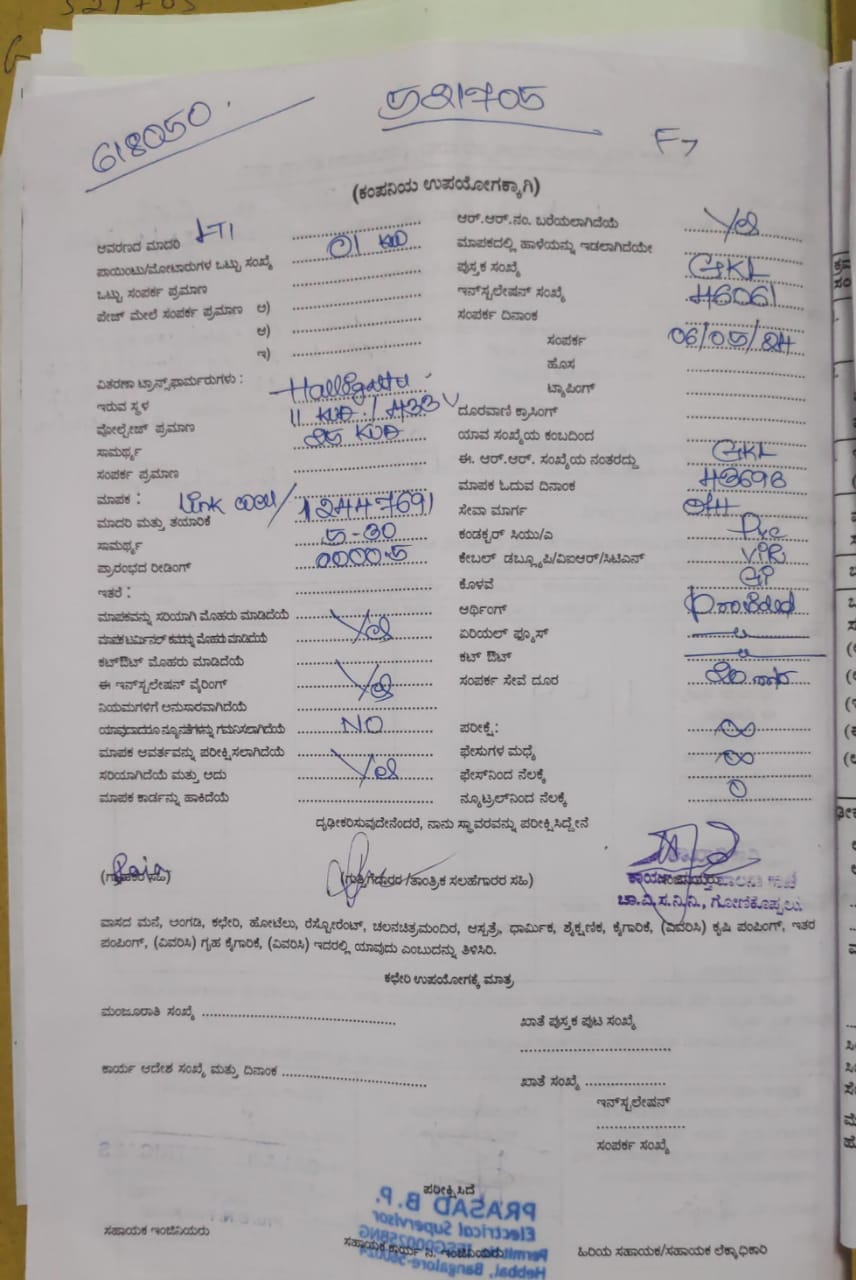 618050
521705
F7
(ಕಂಪನಿಯ ಉಪಯೋಗಕ್ಕಾಗಿ)
ಆವರಣದ ಮಾದರಿ LT1
ಪಾಯಿಂಟು/ಮೋಟಾರುಗಳ ಒಟ್ಟು ಸಂಖ್ಯೆ 01
ಒಟ್ಟು ಸಂಪರ್ಕ ಪ್ರಮಾಣ
ಪೇಜ್ ಮೇಲೆ ಸಂಪರ್ಕ ಪ್ರಮಾಣ ಅ)
ಆ)
ಇ)
ವಿತರಣಾ ಟ್ರಾನ್ಸ್‌ಫಾರ್ಮರುಗಳು :
ಇರುವ ಸ್ಥಳ Halligattu
ವೋಲ್ಟೇಜ್ ಪ್ರಮಾಣ 11 / 433 V
ಸಾಮರ್ಥ್ಯ 25 KVA
ಸಂಪರ್ಕ ಪ್ರಮಾಣ
ಮಾಪಕ :
ಮಾದರಿ ಮತ್ತು ತಯಾರಿಕೆ Link well/12447691
ಸಾಮರ್ಥ್ಯ 5-30
ಪ್ರಾರಂಭದ ರೀಡಿಂಗ್ 0000.5
ಇತರೆ :
ಮಾಪಕವನ್ನು ಸರಿಯಾಗಿ ಮೊಹರು ಮಾಡಿದೆಯೆ
ಮಾಪಕ ಟರ್ಮಿನಲ್ ಕವರನ್ನು ಮೊಹರು ಮಾಡಿದೆಯೆ Yes
ಕಟ್‌ಔಟ್ ಮೊಹರು ಮಾಡಿದೆಯೆ
ಈ ಇನ್‌ಸ್ಟಲೇಷನ್ ವೈರಿಂಗ್ Yes
ನಿಯಮಗಳಿಗೆ ಅನುಸಾರವಾಗಿದೆಯೆ
ಯಾವುದಾದರೂ ನ್ಯೂನತೆಗಳನ್ನು ಗಮನಿಸಲಾಗಿದೆಯೆ NO
ಮಾಪಕ ಆವರ್ತವನ್ನು ಪರೀಕ್ಷಿಸಲಾಗಿದೆಯೆ
ಸರಿಯಾಗಿದೆಯೆ ಮತ್ತು ಅದು Yes
ಮಾಪಕ ಕಾರ್ಡನ್ನು ಹಾಕಿದೆಯೆ
ಆರ್.ಆರ್.ನಂ. ಬರೆಯಲಾಗಿದೆಯೆ Yes
ಮಾಪಕದಲ್ಲಿ ಹಾಳೆಯನ್ನು ಇಡಲಾಗಿದೆಯೇ
ಪುಸ್ತಕ ಸಂಖ್ಯೆ GKL
ಇನ್‌ಸ್ಟಲೇಷನ್ ಸಂಖ್ಯೆ 46061
ಸಂಪರ್ಕ ದಿನಾಂಕ
ಸಂಪರ್ಕ 06/05/24
ಹೊಸ
ಟ್ಯಾಪಿಂಗ್
ದೂರವಾಣಿ ಕ್ರಾಸಿಂಗ್
ಯಾವ ಸಂಖ್ಯೆಯ ಕಂಬದಿಂದ
ಈ. ಆರ್.ಆರ್. ಸಂಖ್ಯೆಯ ನಂತರದ್ದು GKL
ಮಾಪಕ ಓದುವ ದಿನಾಂಕ 43698
ಸೇವಾ ಮಾರ್ಗ OH
ಕಂಡಕ್ಟರ್ ಸಿಯು/ಎ Pvc
ಕೇಬಲ್ ಡಬ್ಲ್ಯೂಪಿ/ವಿಐಆರ್/ಸಿಟಿಎಸ್ VIR
ಕೊಳವೆ GI
ಅರ್ಥಿಂಗ್ Provided
ಏರಿಯಲ್ ಫ್ಯೂಸ್
ಕಟ್ ಔಟ್
ಸಂಪರ್ಕ ಸೇವೆ ದೂರ
ಪರೀಕ್ಷೆ : ∞
ಫೇಸುಗಳ ಮಧ್ಯೆ ∞
ಫೇಸ್‌ನಿಂದ ನೆಲಕ್ಕೆ
ನ್ಯೂಟ್ರಲ್‌ನಿಂದ ನೆಲಕ್ಕೆ 0
ದೃಢೀಕರಿಸುವುದೇನೆಂದರೆ, ನಾನು ಸ್ಥಾವರವನ್ನು ಪರೀಕ್ಷಿಸಿದ್ದೇನೆ
(ಗ್ರಾಹಕರ ಸಹಿ)
(ಗುತ್ತಿಗೆದಾರರ/ತಾಂತ್ರಿಕ ಸಲಹೆಗಾರರ ಸಹಿ)
ಚಾ.ವಿ.ಸ.ನಿ.ನಿ., ಗೋಣಿಕೊಪ್ಪಲು
ವಾಸದ ಮನೆ, ಅಂಗಡಿ, ಕಛೇರಿ, ಹೋಟೆಲು, ರೆಸ್ಟೋರೆಂಟ್, ಚಲನಚಿತ್ರಮಂದಿರ, ಆಸ್ಪತ್ರೆ, ಧಾರ್ಮಿಕ, ಶೈಕ್ಷಣಿಕ, ಕೈಗಾರಿಕೆ, (ವಿವರಿಸಿ) ಕೃಷಿ ಪಂಪಿಂಗ್, ಇತರ
ಪಂಪಿಂಗ್, (ವಿವರಿಸಿ) ಗೃಹ ಕೈಗಾರಿಕೆ, (ವಿವರಿಸಿ) ಇದರಲ್ಲಿ ಯಾವುದು ಎಂಬುದನ್ನು ತಿಳಿಸಿರಿ.
ಕಛೇರಿ ಉಪಯೋಗಕ್ಕೆ ಮಾತ್ರ
ಮಂಜೂರಾತಿ ಸಂಖ್ಯೆ
ಖಾತೆ ಪುಸ್ತಕ ಪುಟ ಸಂಖ್ಯೆ
ಕಾರ್ಯ ಆದೇಶ ಸಂಖ್ಯೆ ಮತ್ತು ದಿನಾಂಕ
ಖಾತೆ ಸಂಖ್ಯೆ
ಇನ್‌ಸ್ಟಲೇಷನ್
ಸಂಪರ್ಕ ಸಂಖ್ಯೆ
ಪರೀಕ್ಷಿಸಿದೆ
PRASAD B.P.
Electrical Supervisor
Hebbal, Bangalore-560024
ಸಹಾಯಕ ಇಂಜಿನಿಯರು
ಸಹಾಯಕ ಕಾರ್ಯ ನಿ. ಇಂಜಿನಿಯರು
ಹಿರಿಯ ಸಹಾಯಕ/ಸಹಾಯಕ ಲೆಕ್ಕಾಧಿಕಾರಿ